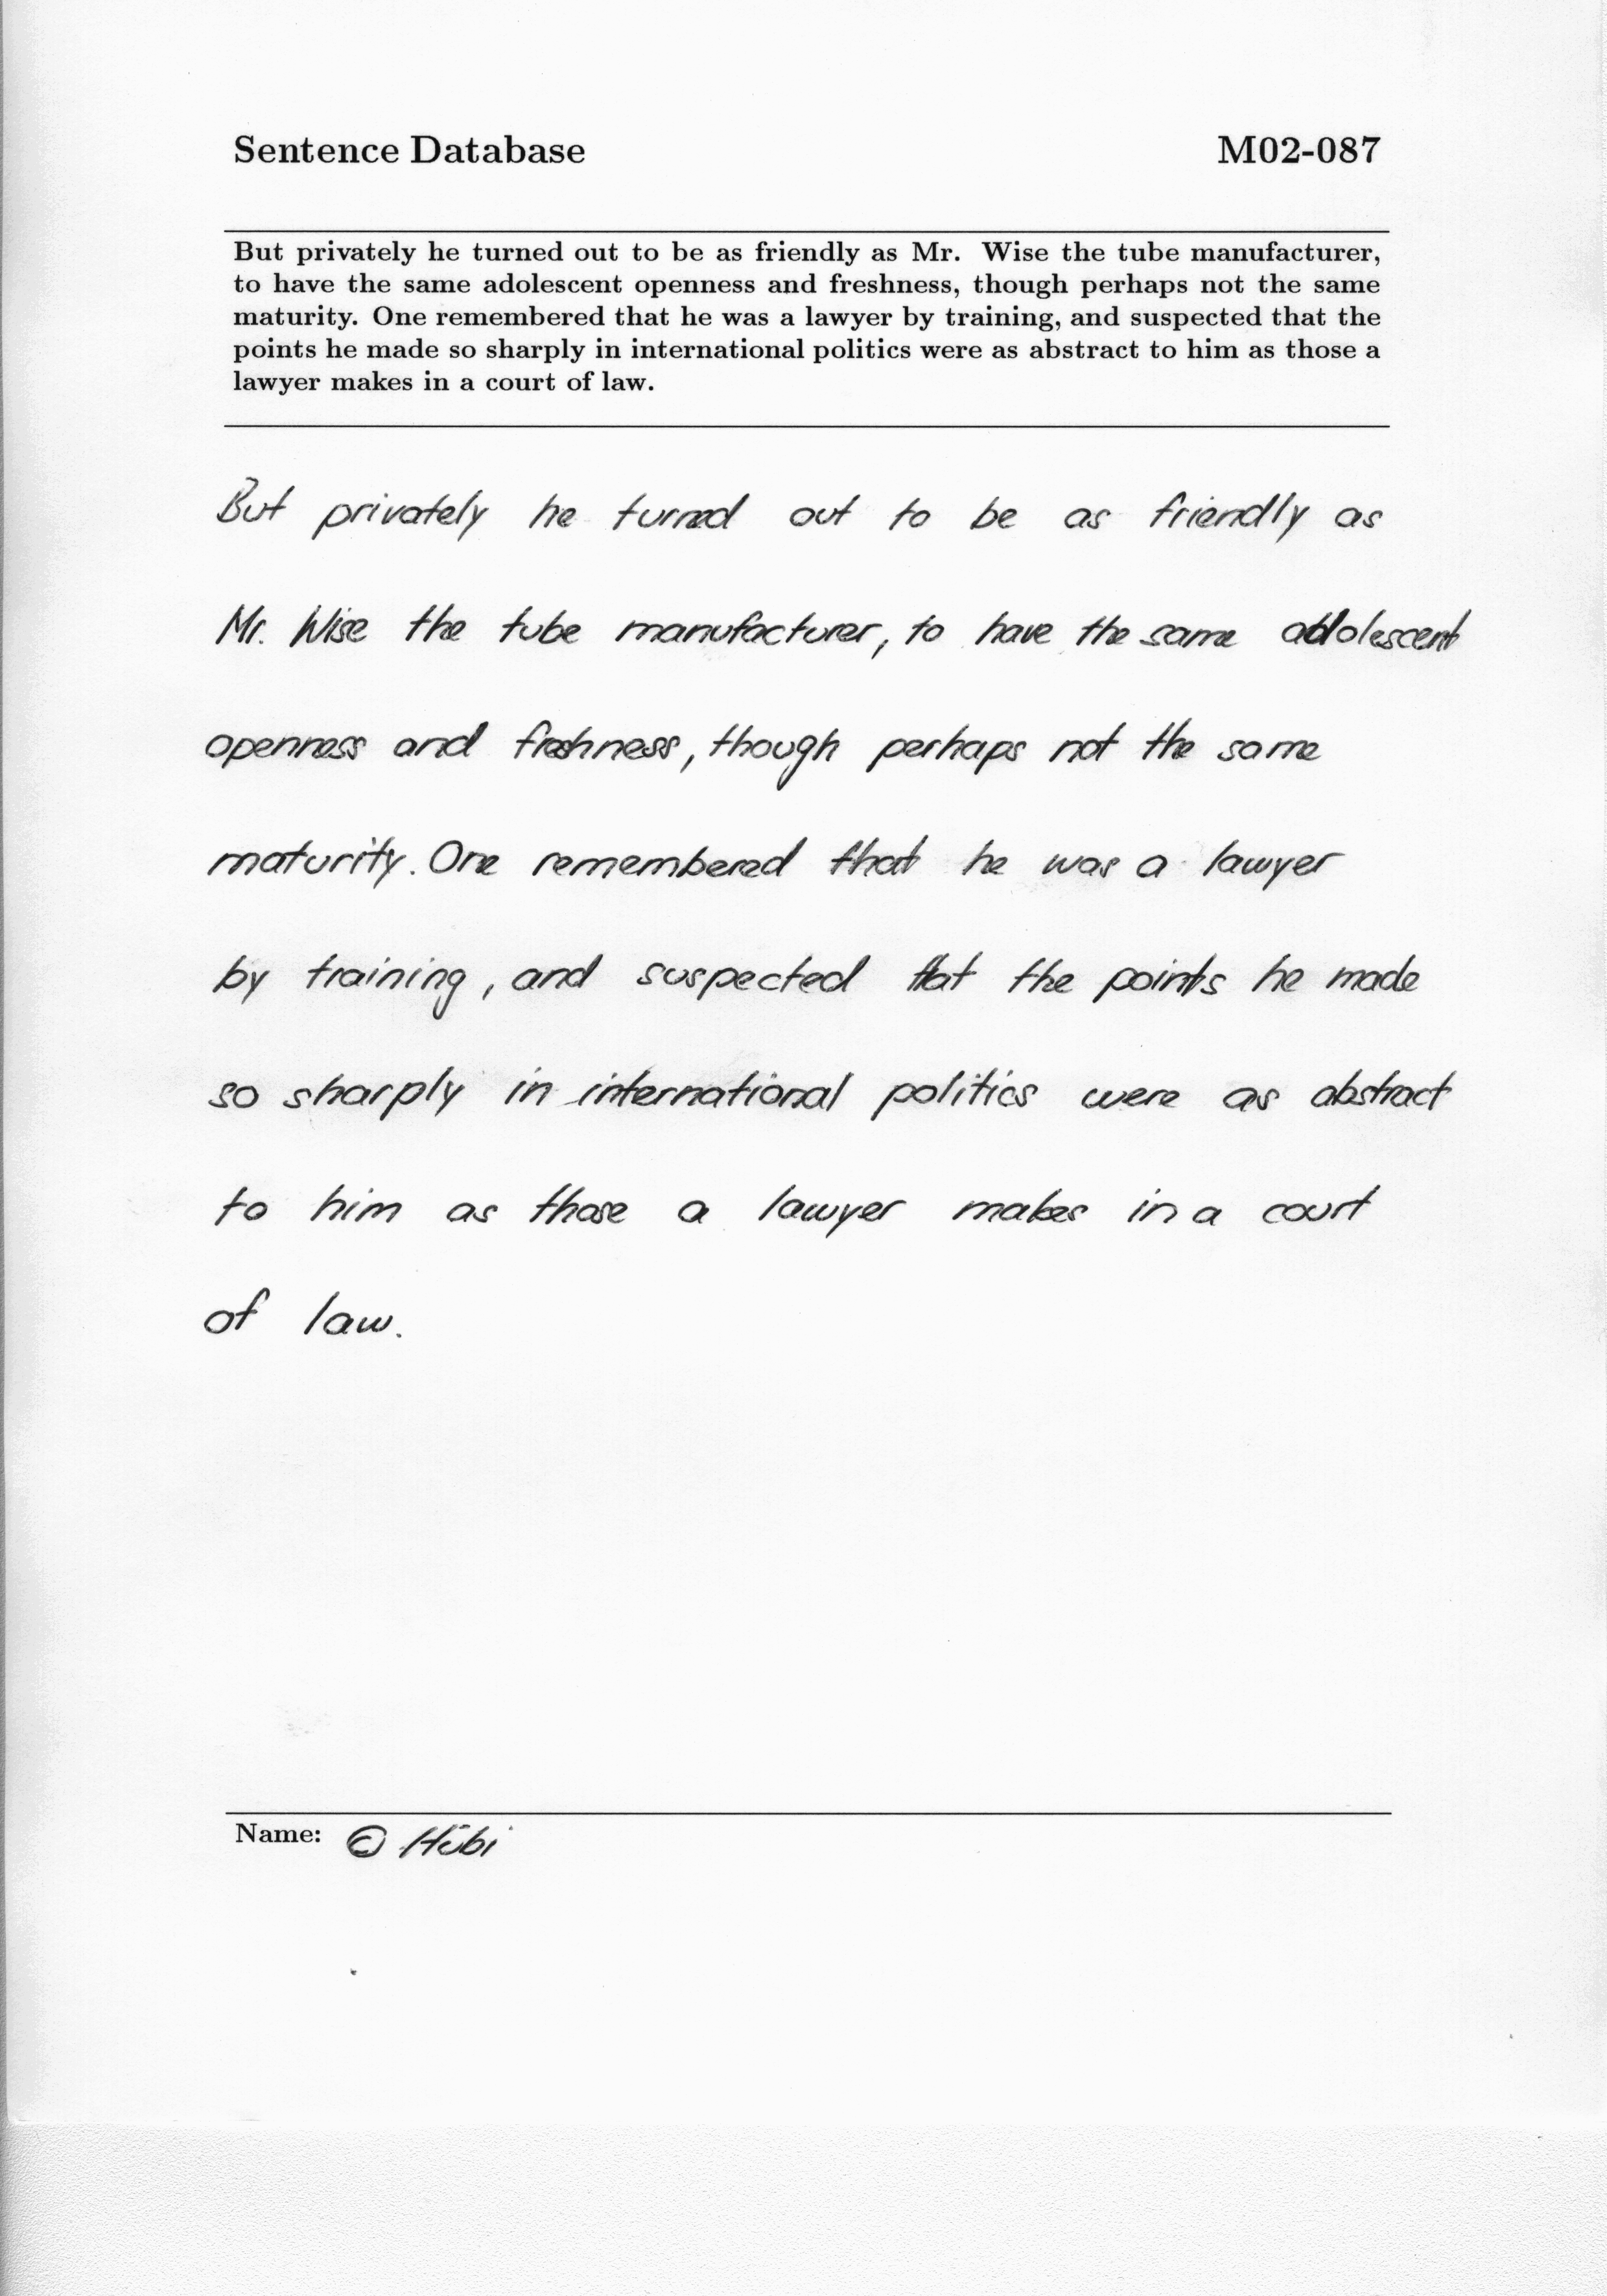 Sentence Database M02-087
But privately he turned out to be as friendly as Mr. Wise the tube manufacturer,
to have the same adolescent openness and freshness, though perhaps not the same
maturity. One remembered that he was a lawyer by training, and suspected that the
points he made so sharply in international politics were as abstract to him as those a
lawyer makes in a court of law.
But privately he turned out to be as friendly as
Mr. Wise the tube manufacturer, to have the same adolescent
openness and freshness, though perhaps not the same
maturity. One remembered that he was a lawyer
by training, and suspected that the points he made
so sharply in international politics were as abstract
to him as those a lawyer makes in a court
of law.
Name: © Hübi